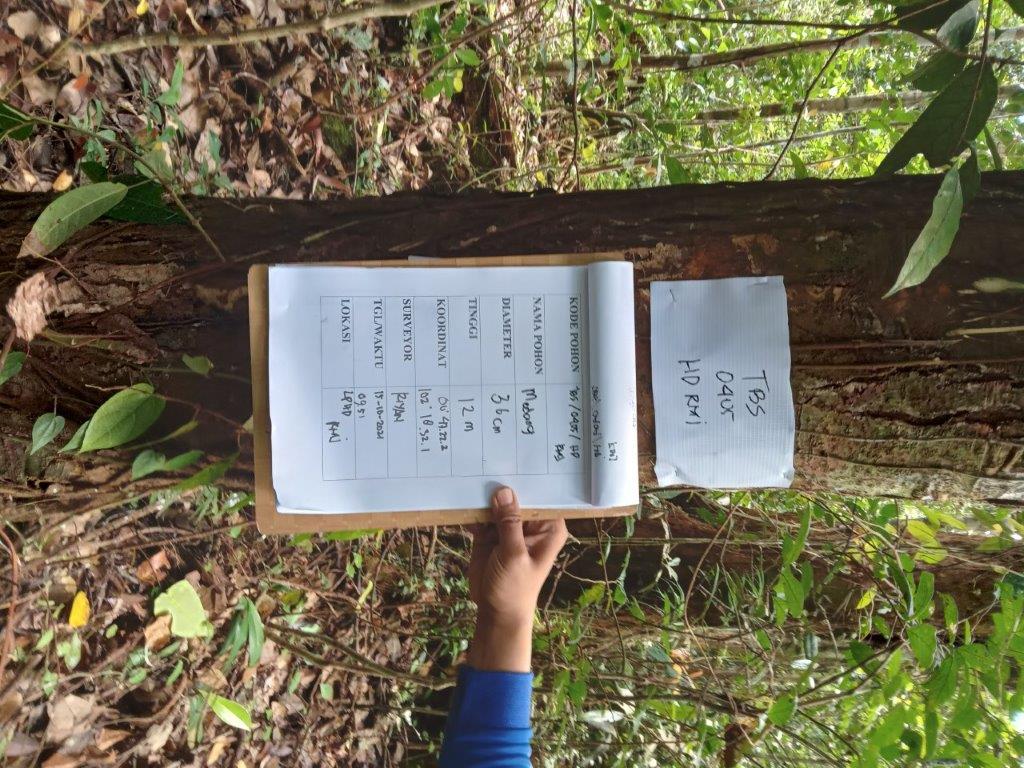 TBS
0405
HD RMI
KODE POHON TBS/0405/HD
RMI
NAMA POHON Medang
DIAMETER 36 cm
TINGGI 12 m
KOORDINAT 00° 47.22.2
102° 18.32.1
SURVEYOR RIYAN
TGL/WAKTU 15-10-2021
09.51
LOKASI LPHD
RMI